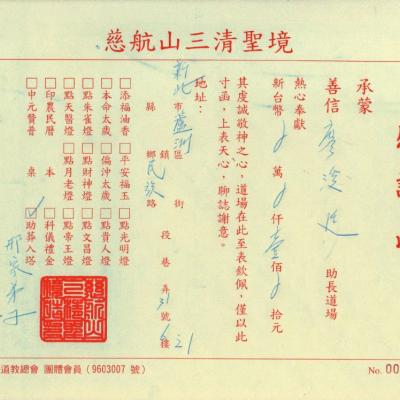 境聖清三山航慈
承蒙
善信 廖 助長道場
熱心奉獻
新台幣 萬 仟壹佰 拾元
其虔誠敬神之心，道場在此至表欽佩，僅以此
寸函，上表天心，聊誌謝意。
地址：
新北市蘆洲區 街
縣 鎮鄉 民族路 段 巷 弄 31號 樓
□添福油香 □平安福玉 □點光明燈
□本命太歲 □偏沖太歲 □點貴人燈
□點朱雀燈 □點財神燈 □點文昌燈
□點天醫燈 □點月老燈 □點帝王燈
□印農民曆 本 □科儀禮金
□中元贊普 桌 ☑助葬入塔
道教總會 團體會員（9603007 號）
No. 00